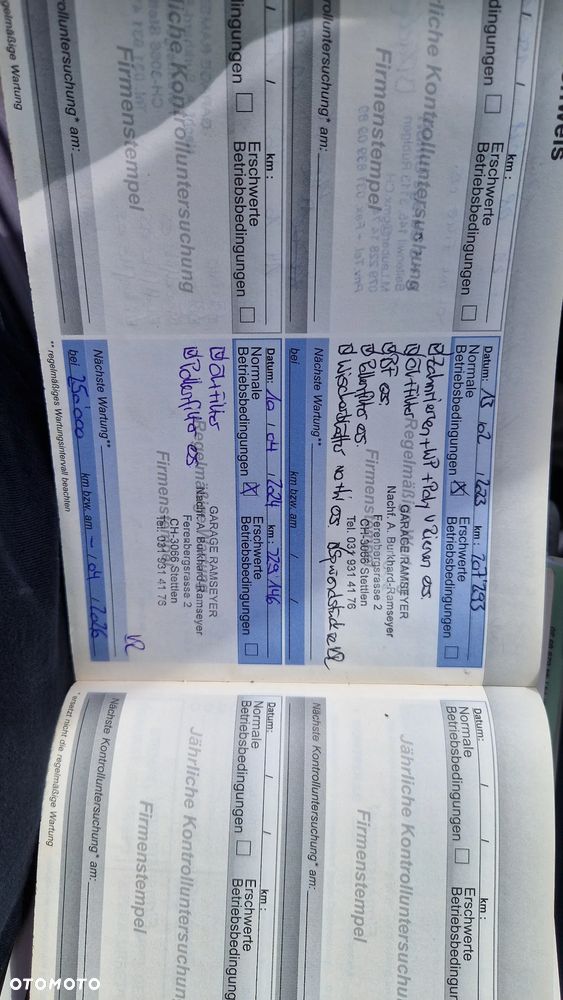 Datum: 13 / 02 / 2023 km: 207'293
Normale Betriebsbedingungen
Erschwerte Betriebsbedingungen
Regelmäßige Wartung
Firmenstempel
Zahnriemen + WP + Poly V Riemen ers.
Ölfilter
ers.
Pollenfilter ers.
Wischerblätter
GARAGE RAMSEYER
Nachf. A. Burkhard-Ramseyer
Ferenbergstrasse 2
CH-3066 Stettlen
Tel. 031 931 41 76
Nächste Wartung**
bei km bzw. am / /
Datum: 10 / 04 / 2024 km: 229'146
Normale Betriebsbedingungen
Erschwerte Betriebsbedingungen
Regelmäßige Wartung
Firmenstempel
Ölfilter
Pollenfilter ers
GARAGE RAMSEYER
Nachf. A. Burkhard-Ramseyer
Ferenbergstrasse 2
CH-3066 Stettlen
Tel. 031 931 41 76
Nächste Wartung**
bei 250'000 km bzw. am - / 04 / 2026
** regelmäßiges Wartungsintervall beachten
km:
Erschwerte Betriebsbedingungen
Jährliche Kontrolluntersuchung
Firmenstempel
km:
Erschwerte Betriebsbedingungen
Kontrolluntersuchung
Firmenstempel
regelmäßige Wartung
Datum: / /
Normale Betriebsbedingungen
km:
Erschwerte
Jährliche Kontrolluntersuchung
Firmenstempel
Nächste Kontrolluntersuchung* am:
Datum: / /
Normale Betriebsbedingungen
km:
Erschwerte
Jährliche Kontrolluntersuchung
Firmenstempel
Nächste Kontrolluntersuchung* am:
* ersetzt nicht die regelmäßige Wartung
OTOMOTO